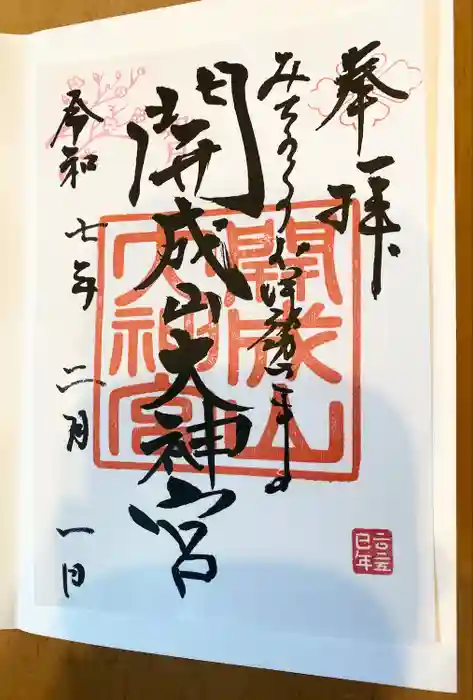 奉拝
みちのくのお伊勢さま
開成山大神宮
令和七年二月一日
開成山大神宮
二〇二五
巳年